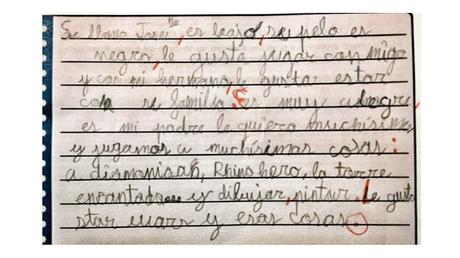 Se llama Jose, es bajo, su pelo es
negro, le gusta jugar conmigo
y con mi hermana, le gusta estar
con su familia. Es muy alegre,
es mi padre le quiero muchísimo
y jugamos a muchísimas cosas:
a Rhino hero, la torre
encantada y dibujar, pintar. Le gusta
star wars y esas cosas.